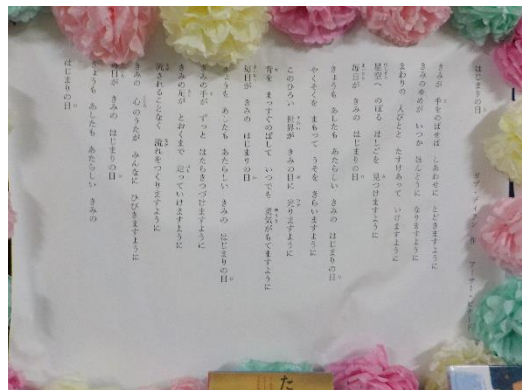 はじまりの日
ボブ・ディラン 作
きみが 手をのばせば しあわせに とどきますように
きみのゆめが いつか ほんとうに なりますように
まわりの 人びとと たすけあって いけますように
星空へ のぼる はしごを 見つけますように
毎日が きみの はじまりの日
きょうも あしたも あたらしい きみの はじまりの日
やくそくを まもって うそを きらいますように
このひろい 世界が きみの目に 光りますように
背を まっすぐのばして いつでも 勇気がもてますように
毎日が きみの はじまりの日
きょうも あしたも あたらしい きみの はじまりの日
きみの手が ずっと はたらきつづけますように
きみの足が とおくまで 走っていけますように
流されることなく 流れをつくりますように
きみの 心のうたが みんなに ひびきますように
毎日が きみの はじまりの日
きょうも あしたも あたらしい きみの
はじまりの日
た